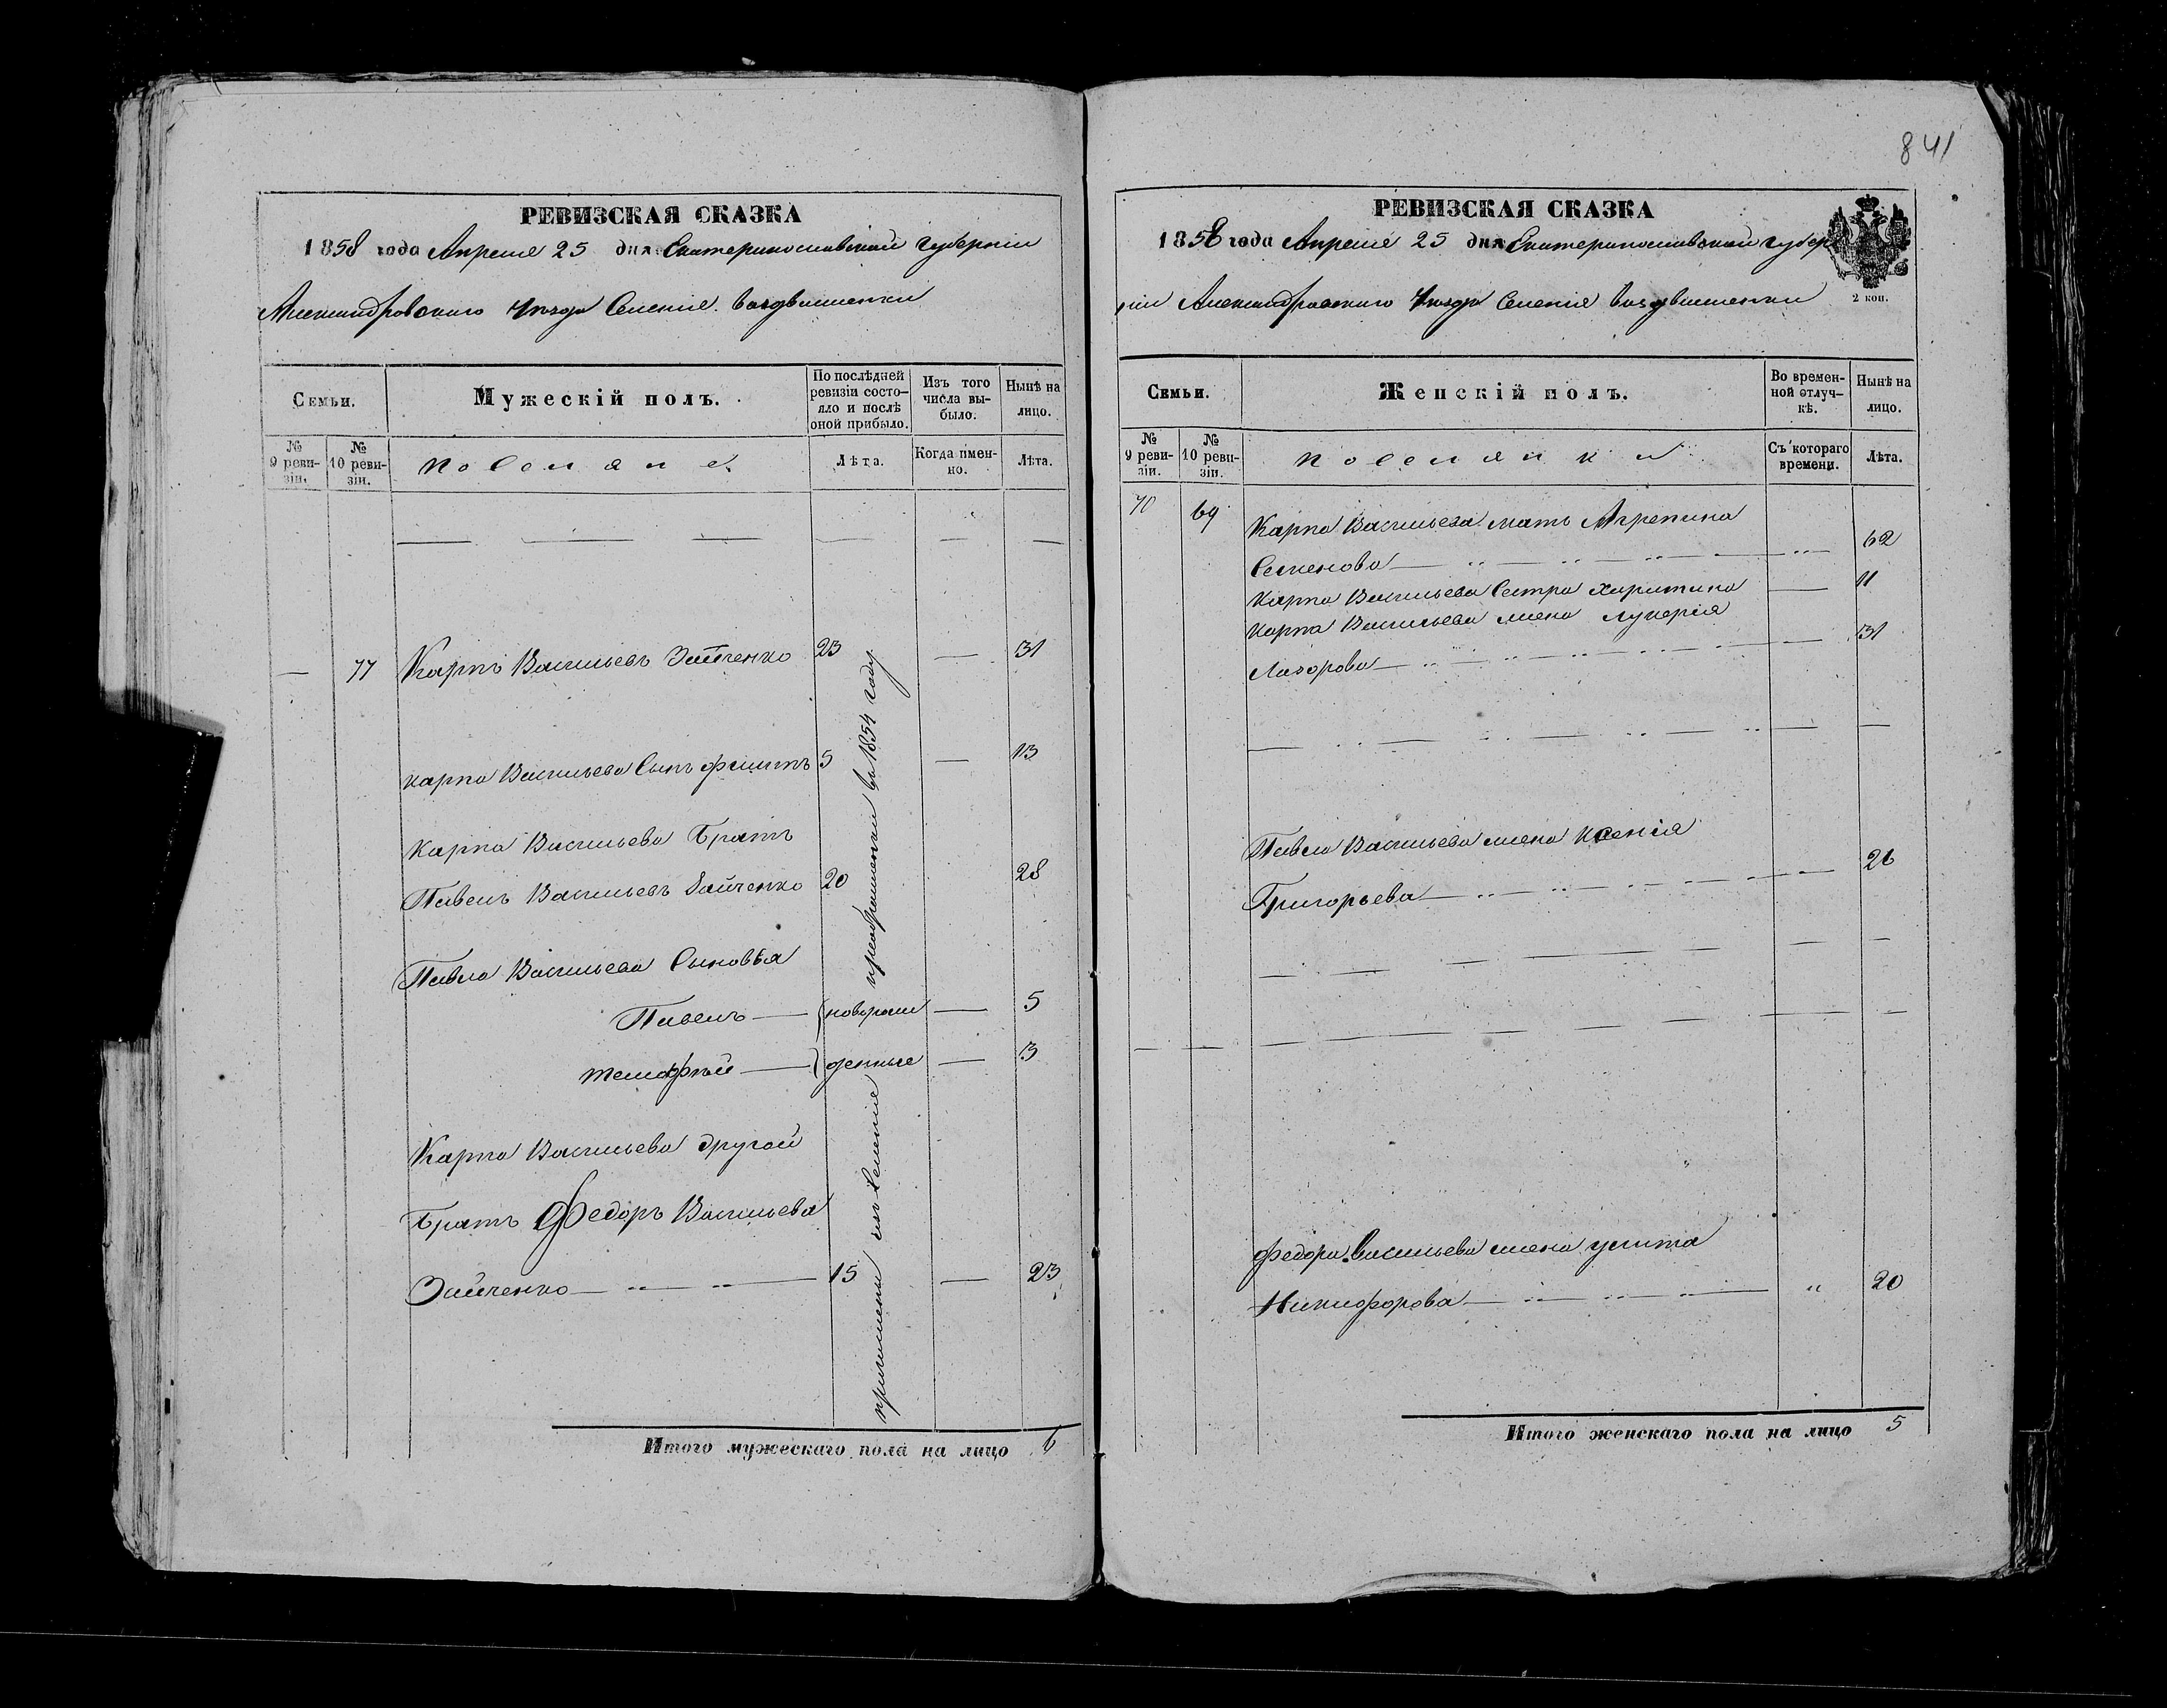 841
РЕВИЗСКАЯ СКАЗКА
1858 года Апреля 25 дня Екатеринославской губернии
Александровского уезда Селения Воздвиженки
Семьи.
Мужескій полъ.
По послѣдней ревизіи состояло и послѣ оной прибыло.
Изъ того числа выбыло.
Нынѣ на лицо.
№ 9 ревизіи.
№ 10 ревизіи.
Поселяне
Лѣта.
Когда имен-но.
Лѣта.
— 77 Карпъ Васильевъ Зайченко 23 — 31
Карпа Васильева Сынъ Филипъ 5 — 13
Карпа Васильева Братъ
Павелъ Васильевъ Зайченко 20 28
Павла Васильева Сыновья
Павелъ — новорож — 5
Тимофѣй — денные — 3
Карпа Васильева другой
Братъ Федоръ Васильева
Зайченко 15 — 23
причислены изъ Селения преображенки въ 1854 году
Итого мужескаго пола на лицо 6
РЕВИЗСКАЯ СКАЗКА
1858 года Апреля 25 дня Екатеринославской губер
ніи Александровского уезда Селенія Воздвиженки
2 коп.
Семьи.
Женскій полъ.
Во времен-ной отлуч-кѣ.
Нынѣ на лицо.
№ 9 реви-зіи.
№ 10 реви-зіи.
Поселянки
Съ котораго времени.
Лѣта.
70 69 Карпа Васильева мать Агрепина
Семенова 62
Карпа Васильева Сестра Харитина — 11
Карпа Васильева жена Лукерія
Лазорова — 31
Павла Васильева жена Ксенія
Григорьева — 26
Федора Васильева жена Улита
Никифорова 20
Итого женскаго пола на лицо 5